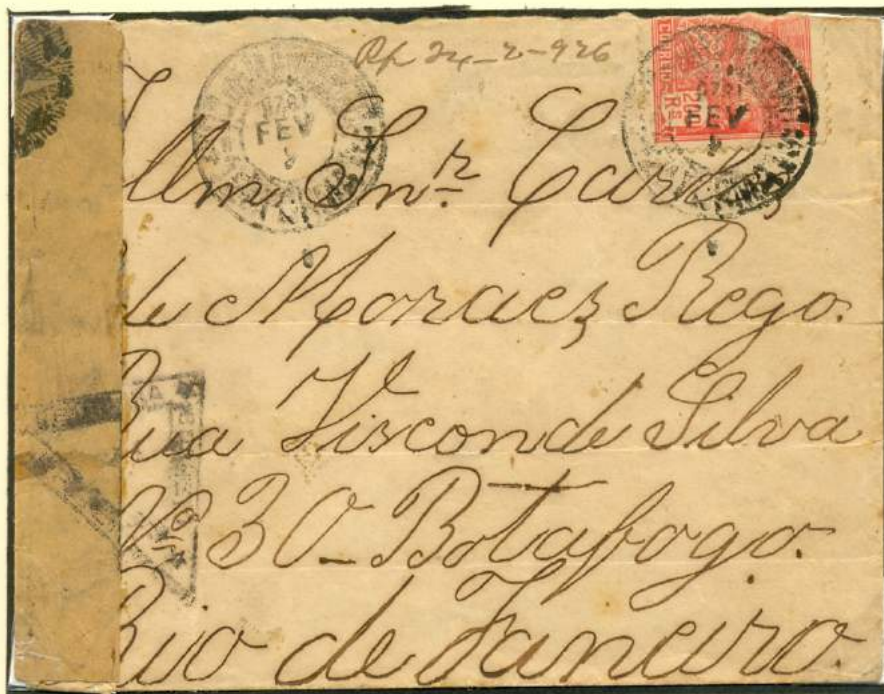 Rp 24-2-926
CORREIO
200
Rs
1926
FEV
1926
FEV
Illmo Snr. Carlos
de Moraes Rego.
Rua Visconde Silva
No 30_ Botafogo.
Rio de Janeiro.